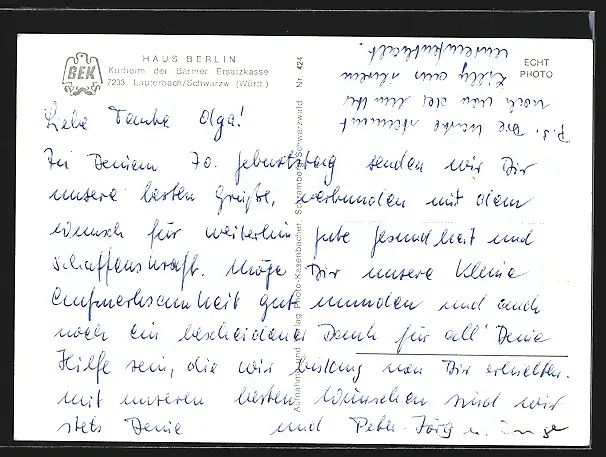 HAUS BERLIN
BEK
Kurheim der Barmer Ersatzkasse
7233 Lauterbach/Schwarzw (Württ.)
Nr. 424
ECHT
PHOTO
Aufnahme und Verlag Photo-Kasenbacher, Schramberg/Schwarzwald
Liebe Tante Olga!
Zu Deinem 70. Geburtstag senden wir Dir
unsere besten Grüße, verbunden mit dem
Wunsch für weiterhin gute Gesundheit und
Schaffenskraft. Möge Dir unsere kleine
Aufmerksamkeit gut munden und auch
noch ein bescheidener Dank für all' Deine
Hilfe sein, die wir bislang von Dir erhielten.
Mit unseren besten Wünschen sind wir
stets Deine und Peter-Jörg u.
P.S. Die Karte stammt
noch von der
aus